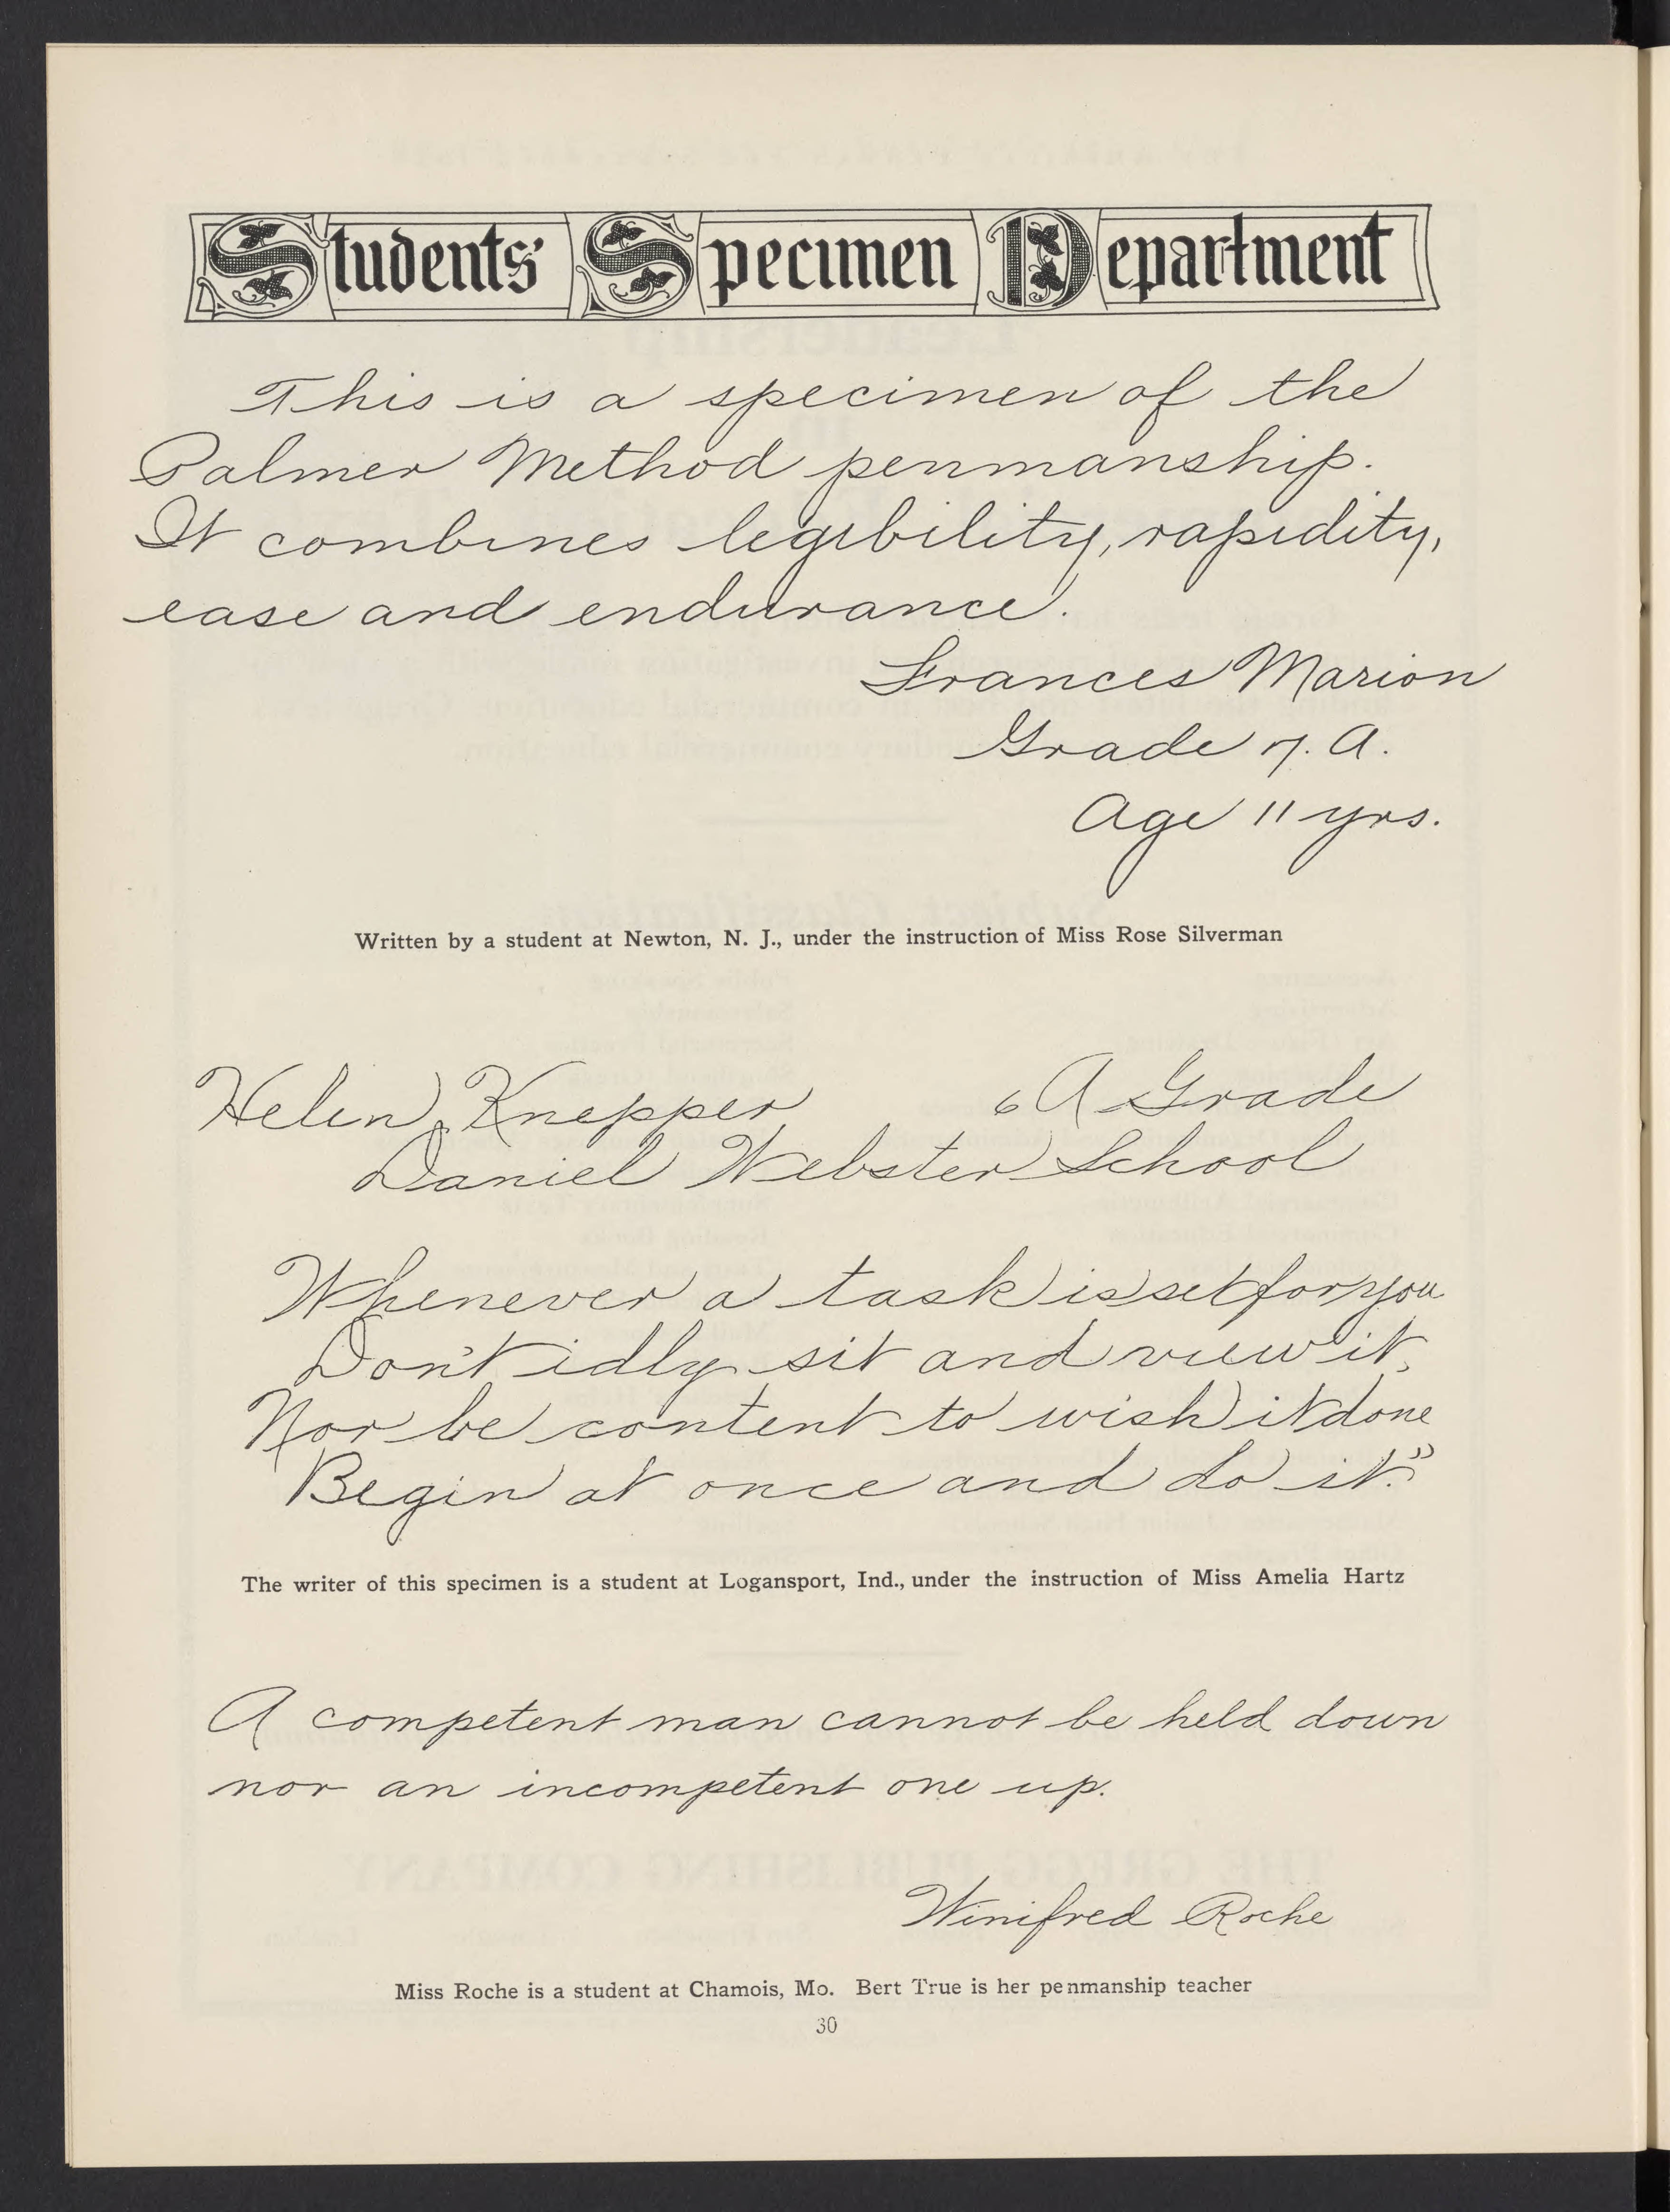 Students' Specimen Department
This is a specimen of the
Palmer Method penmanship.
It combines legibility, rapidity,
ease and endurance.
Frances Marion
Grade 7. A.
Age 11 yrs.
Written by a student at Newton, N. J., under the instruction of Miss Rose Silverman
Helen Knepper 6A Grade
Daniel Webster School
Whenever a task is set for you
Don't idly sit and view it,
Nor be content to wish it done
Begin at once and do it."
The writer of this specimen is a student at Logansport, Ind., under the instruction of Miss Amelia Hartz
A competent man cannot be held down
nor an incompetent one up.
Winifred Roche
Miss Roche is a student at Chamois, Mo. Bert True is her penmanship teacher
30